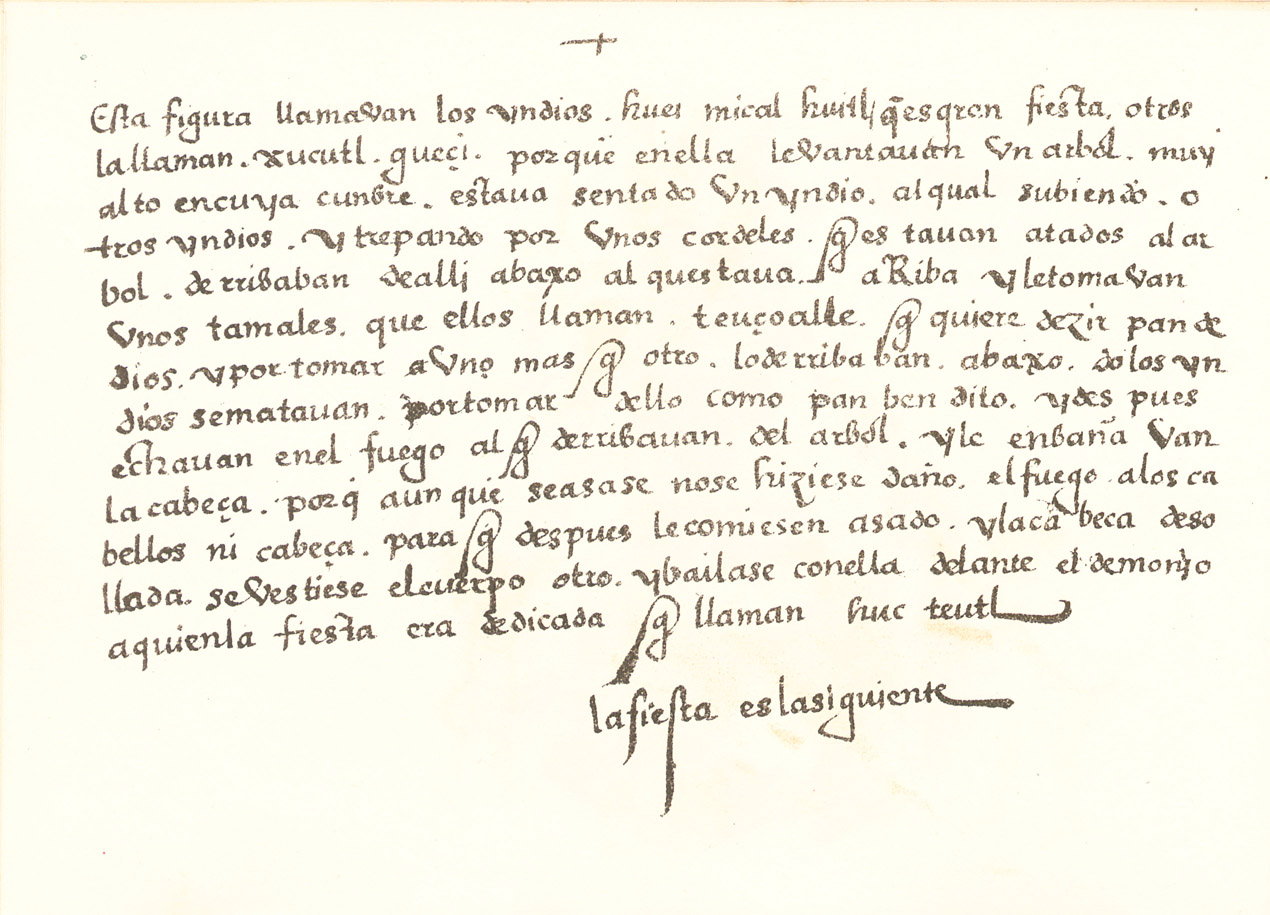 +
Esta figura llamavan los yndios . huei mical huitl / q̃ es gran fiesta, otros
la llaman . xucutl . gueçi . por que en ella levantauan vn arbol . muy
alto en cuya cunbre . estaua sentado vn yndio . al qual subiendo . o
tros yndios . y trepando por vnos cordeles . q̃ estauan atados al ar
bol . derribaban de alli abaxo al questaua aRiba y le tomavan
vnos tamales . que ellos llaman . teuçoalle . q̃ quiere dezir pan de
dios . y por tomar a vno mas q̃ otro . lo derribaban . abaxo . do los yn
dios se matauan . por tomar dello como pan bendito . y des pues
echauan en el fuego al q̃ derribauan . del arbol . y le enbaña van
la cabeça . porq̃ aun que se asase no se hiziese daño . el fuego a los ca
bellos ni cabeça . para q̃ despues le comiesen asado . y la cabeca deso
llada . se vestiese el cuerpo otro . y bailase con ella delante el demonyo
a quien la fiesta era dedicada q̃ llaman hue teutl
la fiesta es la siguiente